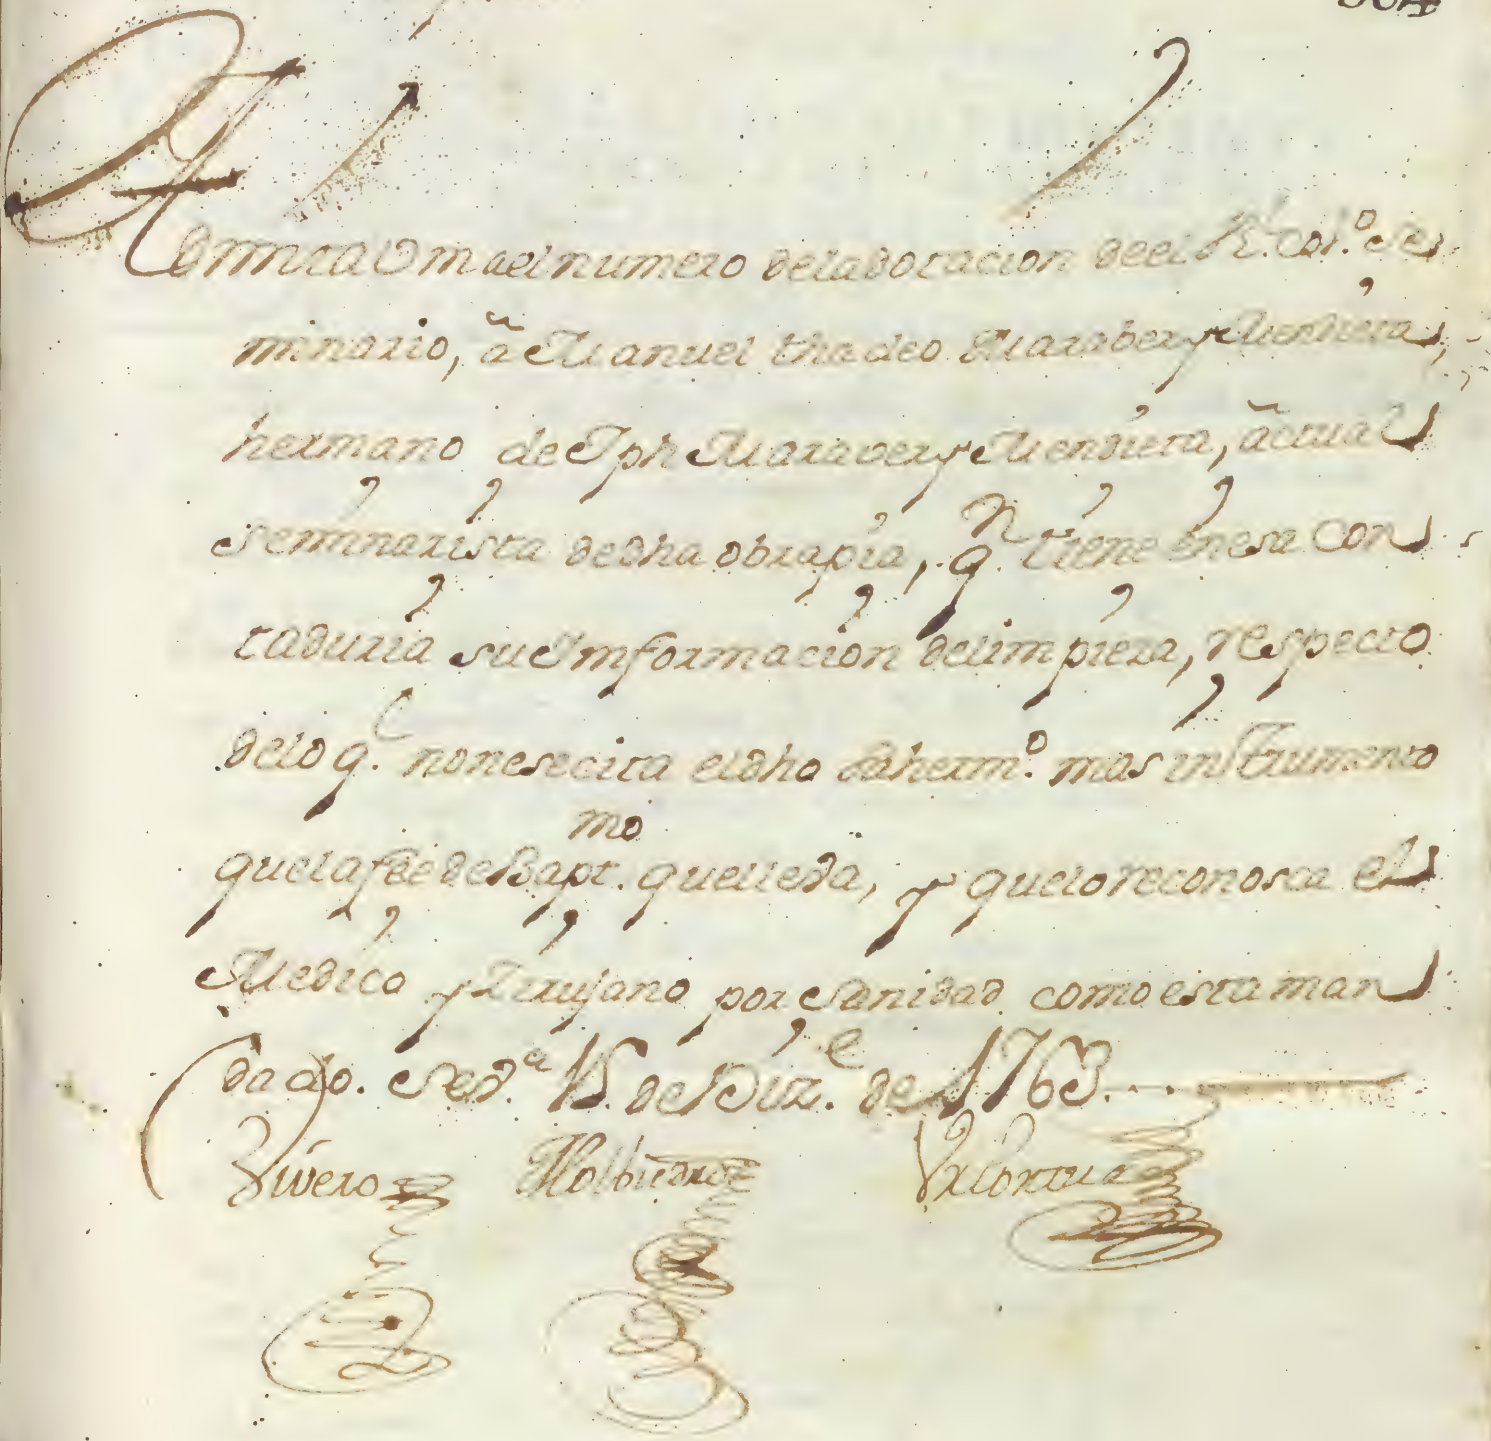 Admita Vm al numero de la dotacion de el Rl. Col.o Se
minario, â Manuel thadeo Maraber y Mendieta,
hermano de Jph Maraver y Mendieta, âctual
Seminarista de dha obrapia, q.n tiene en esa Con
taduria su Informacion de limpieza, respecto
de lo q.e no nesecita el dho herm.o mas instrumento
que la fee de Bapt.mo que lleva, y que lo reconosca el
Medico y Zirujano por Sanidad como esta man
dado. Sed.a 15. de Diz.e de 1763.
Rivero